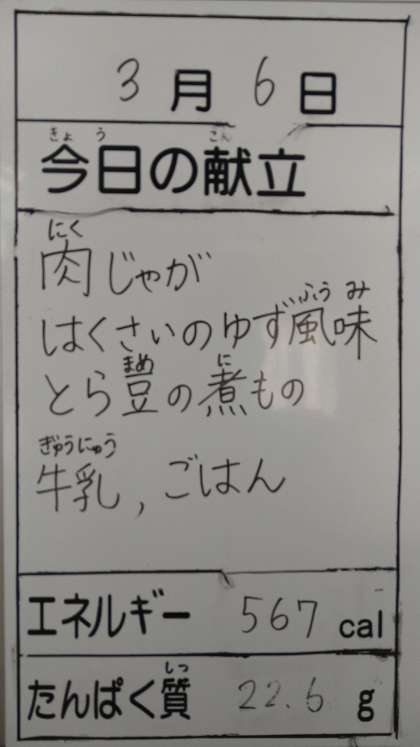 3月6日
きょう こん
今日の献立
にく
肉じゃが
ふうみ
はくさいのゆず風味
まめ に
とら豆の煮もの
ぎゅうにゅう
牛乳，ごはん
エネルギー 567 cal
しつ
たんぱく質 22.6 g